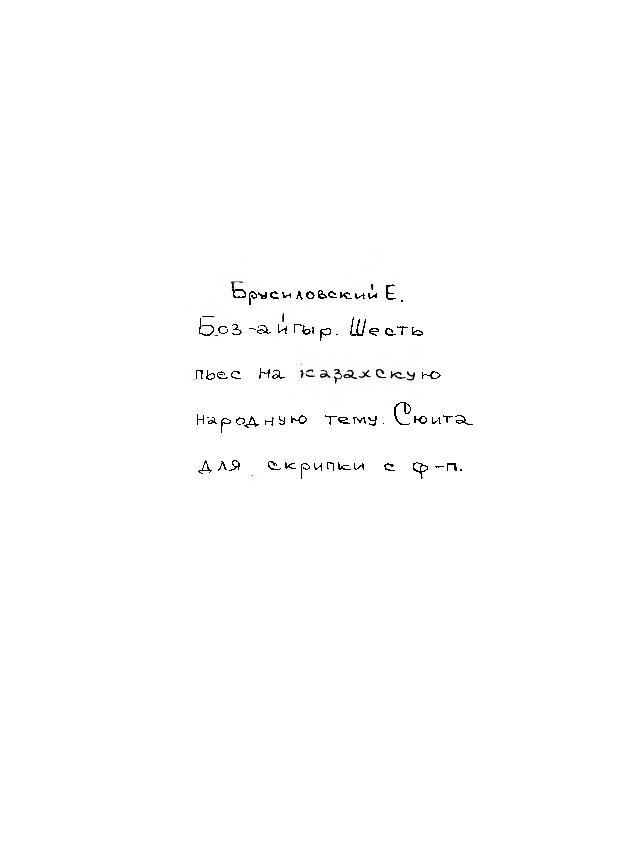 Брусиловский Е.
Боз-айгыр. Шесть
пьес на казахскую
народную тему. Сюита
для скрипки с ф-п.